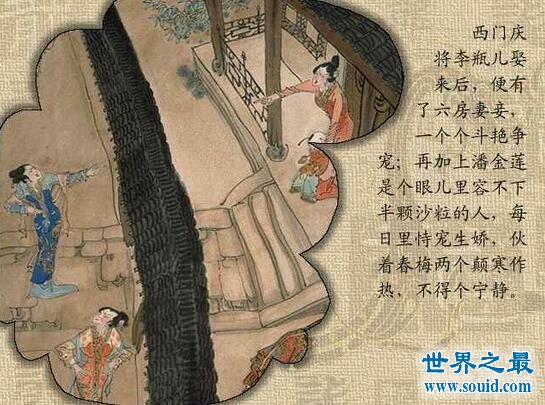 西门庆
将李瓶儿娶
来后，便有
了六房妻妾，
一个个斗艳争
宠；再加上潘金莲
是个眼儿里容不下
半颗沙粒的人，每
日里恃宠生娇，伙
着春梅两个颠寒作
热，不得个宁静。
世界之最
www.souid.com